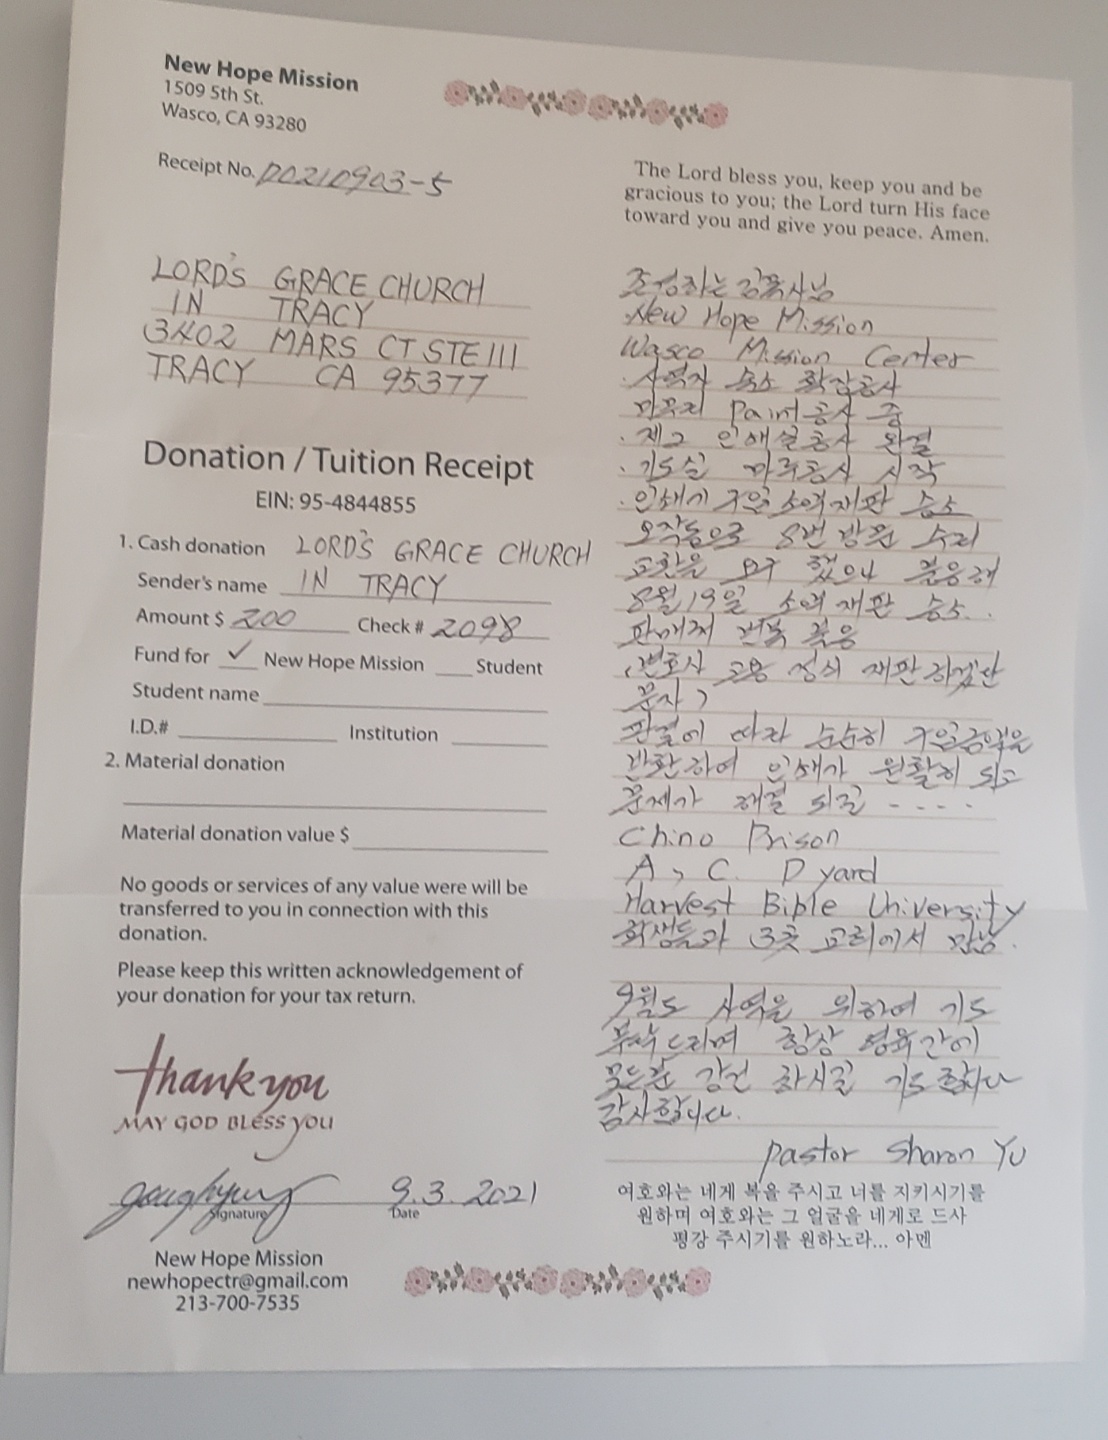 New Hope Mission
1509 5th St.
Wasco, CA 93280
Receipt No. D0210903-5
LORD'S GRACE CHURCH
IN TRACY
3402 MARS CT STE 111
TRACY CA 95377
Donation / Tuition Receipt
EIN: 95-4844855
1. Cash donation LORD'S GRACE CHURCH
Sender's name IN TRACY
Amount $ 200 Check # 2098
Fund for ✓ New Hope Mission Student
Student name
I.D.# Institution
2. Material donation
Material donation value $
No goods or services of any value were will be
transferred to you in connection with this
donation.
Please keep this written acknowledgement of
your donation for your tax return.
Thank you
MAY GOD BLESS YOU
Signature
9. 3. 2021
Date
New Hope Mission
newhopectr@gmail.com
213-700-7535
The Lord bless you, keep you and be
gracious to you; the Lord turn His face
toward you and give you peace. Amen.
존경하는 김목사님
New Hope Mission
Wasco Mission Center
. 사역자 숙소 확장공사
마무리 Paint 공사 중
. 제2 인쇄실 공사 완결
. 기도실 마루공사 시작
. 인쇄기 구입 소액재판 승소
오작동으로 8번 방문 수리
교환을 요구 했으나 불응해
8월 19일 소액 재판 승소..
판매처 건복 불응
(변호사 고용 정식 재판 하겠단
문자)
판결에 따라 순순히 구입금액을
반환하여 인쇄가 원활히 되고
문제가 해결 되길 - - - -
Chino Prison
A, C. D yard
Harvest Bible University
학생들과 3곳 교회에서 만남.
9월도 사역을 위하여 기도
부탁드리며 항상 영육간에
모든분 강건 하시길 기도합니다
감사합니다.
Pastor Sharon Yu
여호와는 네게 복을 주시고 너를 지키시기를
원하며 여호와는 그 얼굴을 네게로 드사
평강 주시기를 원하노라... 아멘